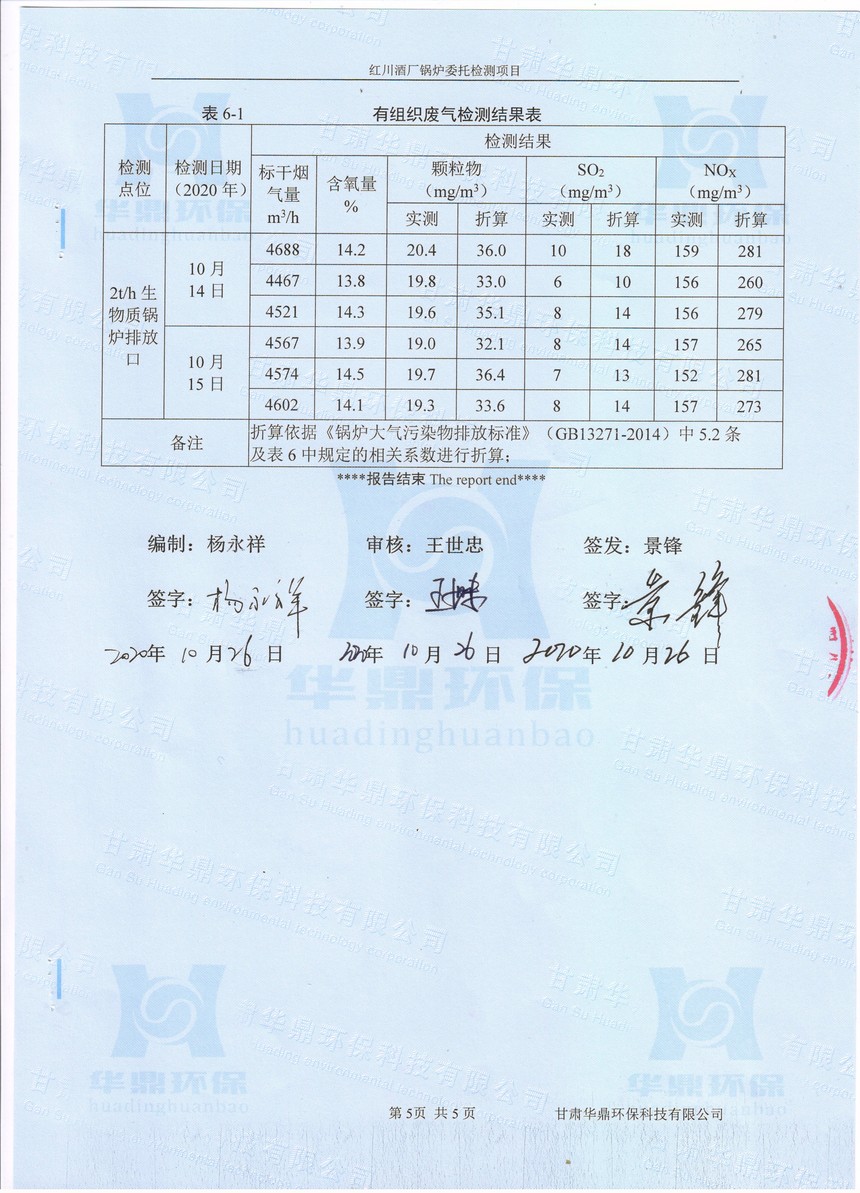 红川酒厂锅炉委托检测项目
表 6-1 有组织废气检测结果表
检测点位 检测日期（2020 年） 检测结果
标干烟气量 m³/h 含氧量 % 颗粒物（mg/m³） SO₂（mg/m³） NOx（mg/m³）
实测 折算 实测 折算 实测 折算
2t/h 生物质锅炉排放口
10 月 14 日
4688 14.2 20.4 36.0 10 18 159 281
4467 13.8 19.8 33.0 6 10 156 260
4521 14.3 19.6 35.1 8 14 156 279
10 月 15 日
4567 13.9 19.0 32.1 8 14 157 265
4574 14.5 19.7 36.4 7 13 152 281
4602 14.1 19.3 33.6 8 14 157 273
备注 折算依据《锅炉大气污染物排放标准》（GB13271-2014）中 5.2 条
及表 6 中规定的相关系数进行折算；
****报告结束 The report end****
编制：杨永祥 审核：王世忠 签发：景锋
签字：杨永祥 签字：王世忠 签字：景锋
2020年 10 月 26 日 2020年 10 月 26 日 2020 年 10 月 26 日
华鼎环保
huadinghuanbao
华鼎环保 华鼎环保
huadinghuanbao huadinghuanbao
第 5页 共 5 页 甘肃华鼎环保科技有限公司